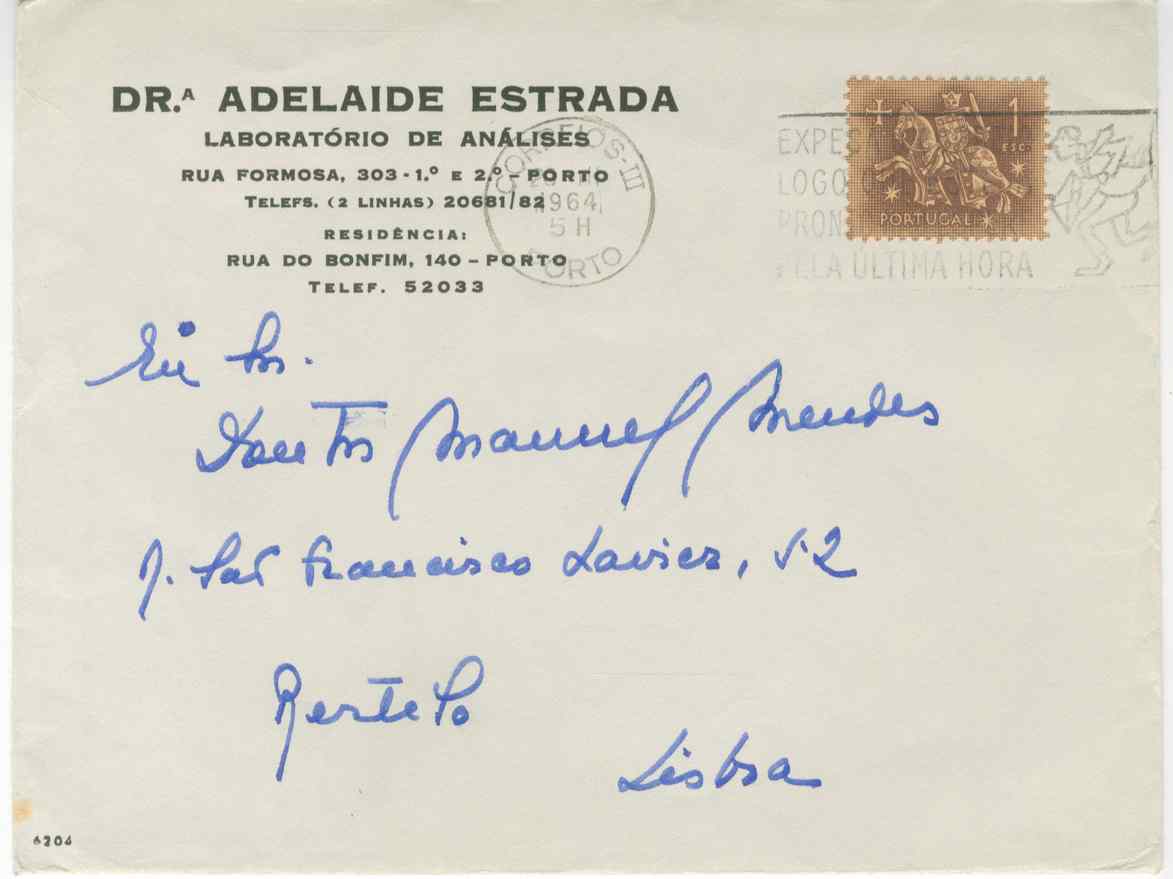 DR.ᴬ ADELAIDE ESTRADA
LABORATÓRIO DE ANÁLISES
RUA FORMOSA, 303-1.º E 2.º - PORTO
TELEFS. (2 LINHAS) 20681/82
RESIDÊNCIA:
RUA DO BONFIM, 140 - PORTO
TELEF. 52033
CORREIOS-III
1964
5 H
PORTO
LOGO
PELA ÚLTIMA HORA
1
ESC.
PORTUGAL
Manuel Mendes
R. São Francisco Xavier, 52
Restelo
Lisboa
6204